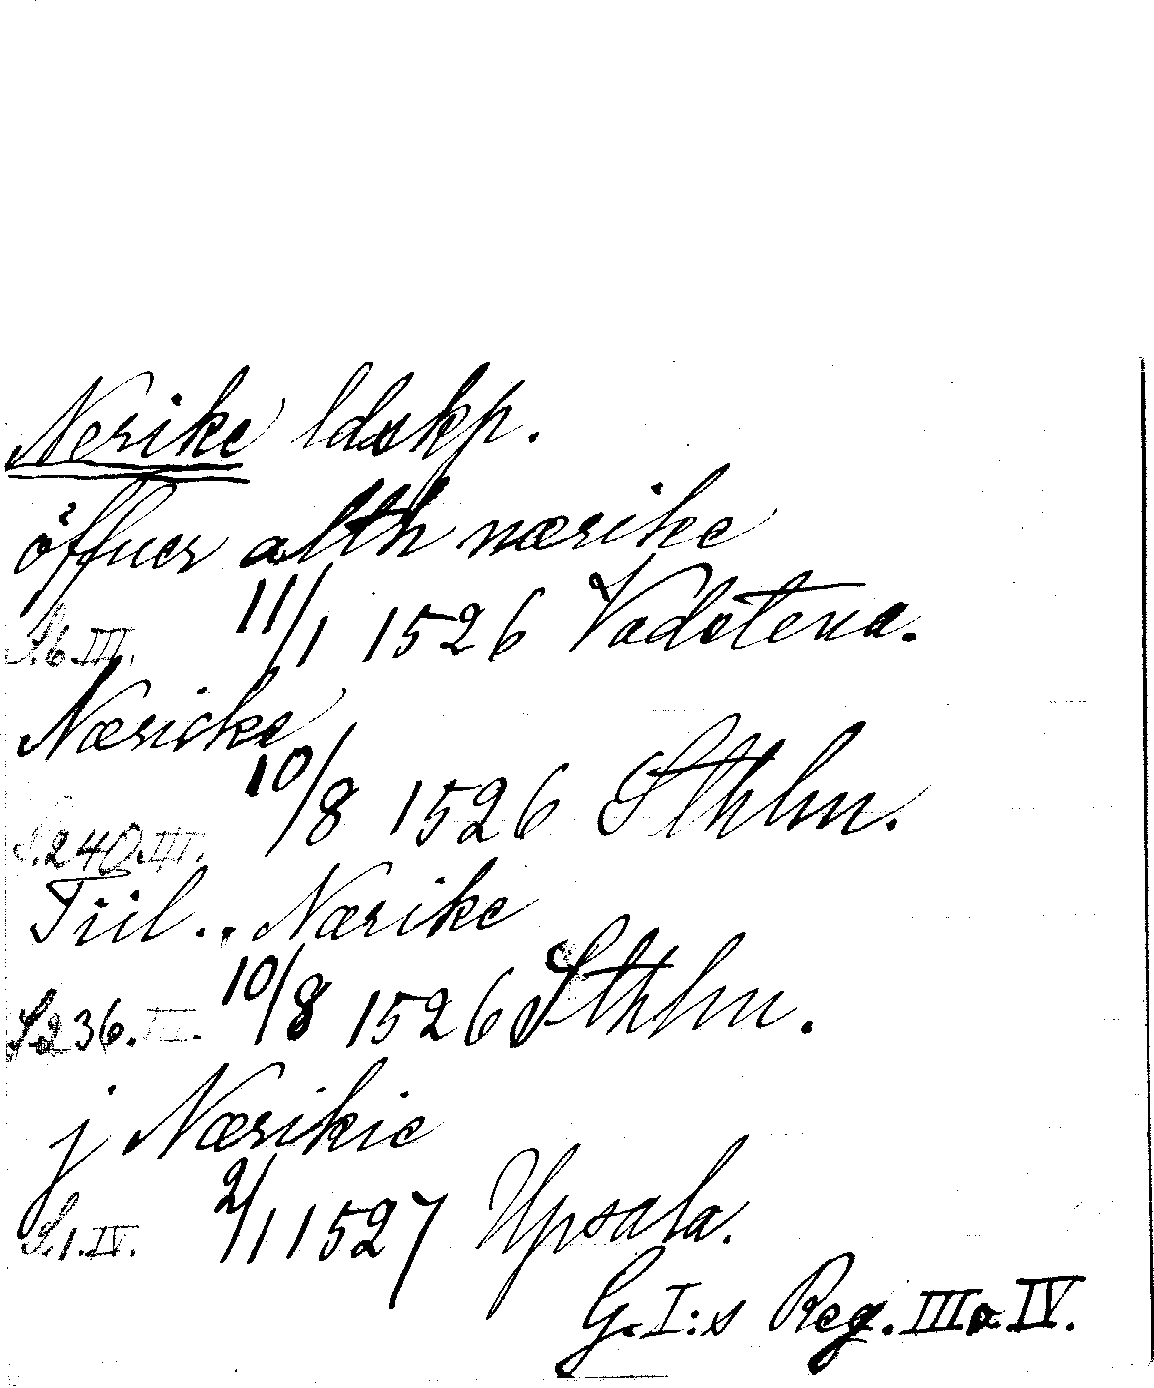 Nerike ldskp.
öffuer alth nærike
S. 6. III. 11/1 1526 Vadstena.
Næricke
S. 240. III. 10/8 1526 Sthlm.
Tiil .. Nærike
S. 236. III. 10/8 1526 Sthlm.
j Nærikie
S. 1. IV. 2/1 1527 Upsala.
G. I:s Reg. III o. IV.